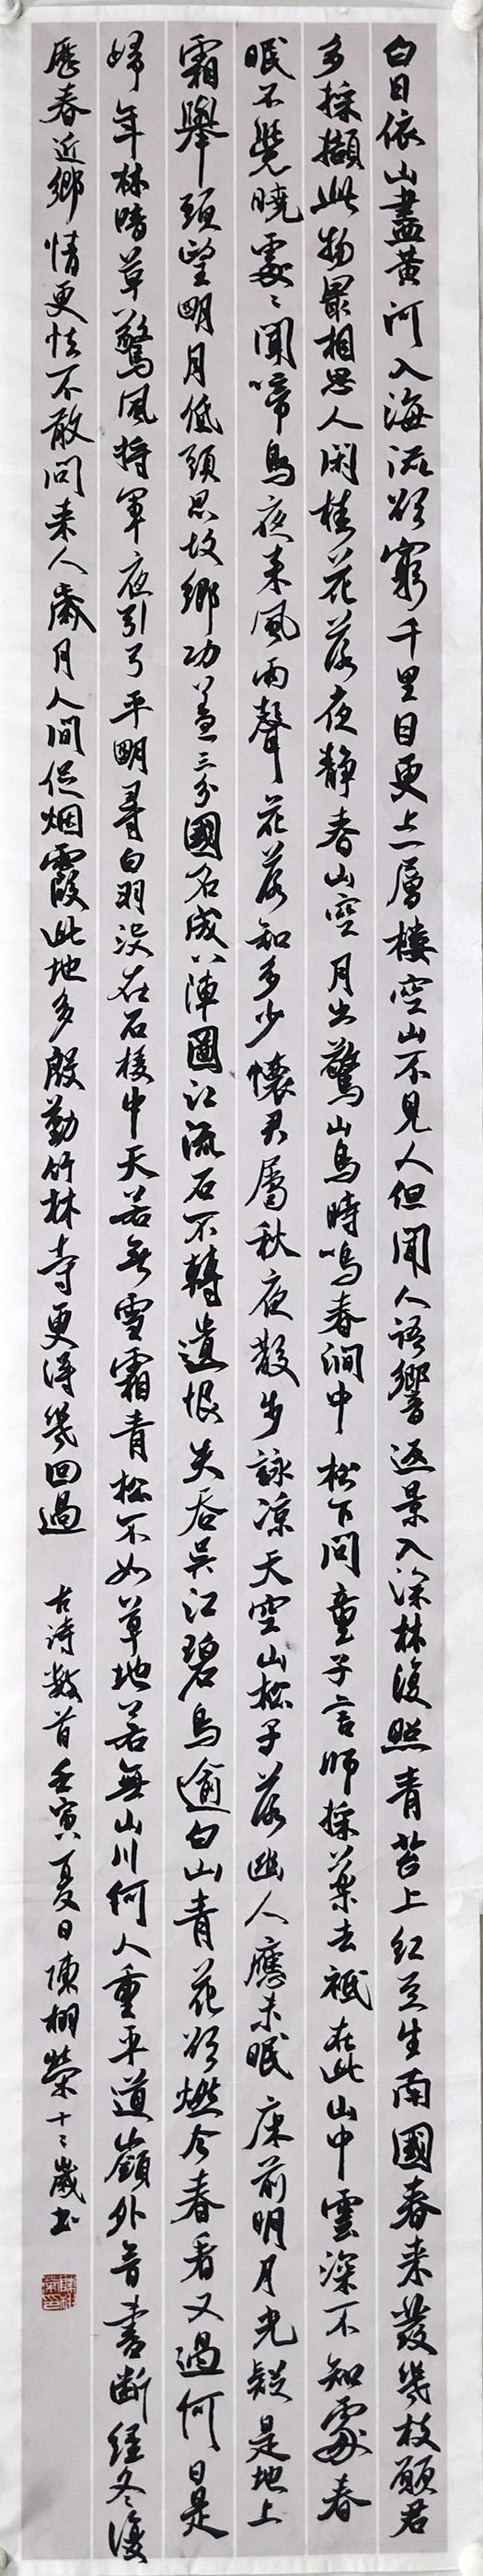 白日依山盡黃河入海流欲窮千里目更上一層樓空山不見人但聞人語響返景入深林復照青苔上紅豆生南國春來發幾枝願君
多採擷此物最相思人閑桂花落夜靜春山空月出驚山鳥時鳴春澗中松下問童子言師採藥去祗在此山中雲深不知處春
眠不覺曉處〻聞啼鳥夜來風雨聲花落知多少懷君屬秋夜散步詠涼天空山松子落幽人應未眠床前明月光疑是地上
霜舉頭望明月低頭思故鄉功蓋三分國名成八陣圖江流石不轉遺恨失吞吳江碧鳥逾白山青花欲燃今春看又過何日是
歸年林暗草驚風將軍夜引弓平明尋白羽沒在石棱中天若無雪霜青松不如草地若無山川何人重平道嶺外音書斷經冬復
歷春近鄉情更怯不敢問來人歲月人間促烟霞此地多殷勤竹林寺更得幾回過 古詩數首壬寅夏日陳栩榮十二歲書